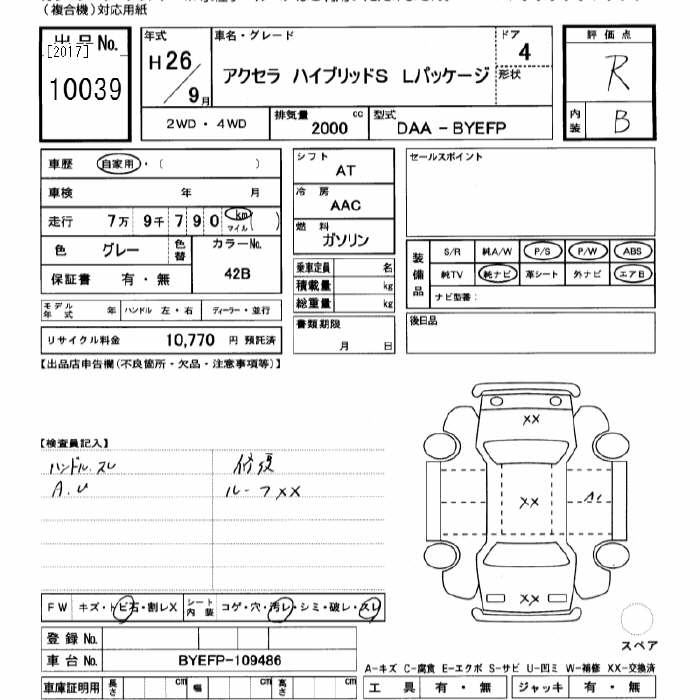 （複合機）対応用紙
出品No.
[2017]
10039
年式
H26／9月
車名・グレード
アクセラ ハイブリッドS Lパッケージ
ドア
4
形状
2WD・4WD
排気量 2000 cc
型式 DAA - BYEFP
評価点
R
内装
B
車歴 自家用・（ ）
車検 年 月
走行 7万 9千 7 9 0 km マイル（ ）
色 グレー 色替
カラーNo.
42B
保証書 有・無
モデル年式 年 ハンドル 左・右 ディーラー・並行
リサイクル料金 10,770 円 預託済
シフト
AT
冷房
AAC
燃料
ガソリン
乗車定員 名
積載量 kg
総重量 kg
書類期限
月 日
セールスポイント
装備品
S/R 純A/W P/S P/W ABS
純TV 純ナビ 革シート 外ナビ エアB
ナビ型番：
後日品
【出品店申告欄（不良箇所・欠品・注意事項等）】
【検査員記入】
ハンドル.スレ
A.U
修復
ルーフXX
XX
XX
A1
XX
FW キズ・トビ石・割レX
シート内装 コゲ・穴・汚レ・シミ・破レ・スレ
登録No.
車台No. BYEFP-109486
車庫証明用 長さ cm 幅 cm 高さ cm
スペア
A-キズ C-腐食 E-エクボ S-サビ U-凹ミ W-補修 XX-交換済
工具 有・無 ジャッキ 有・無